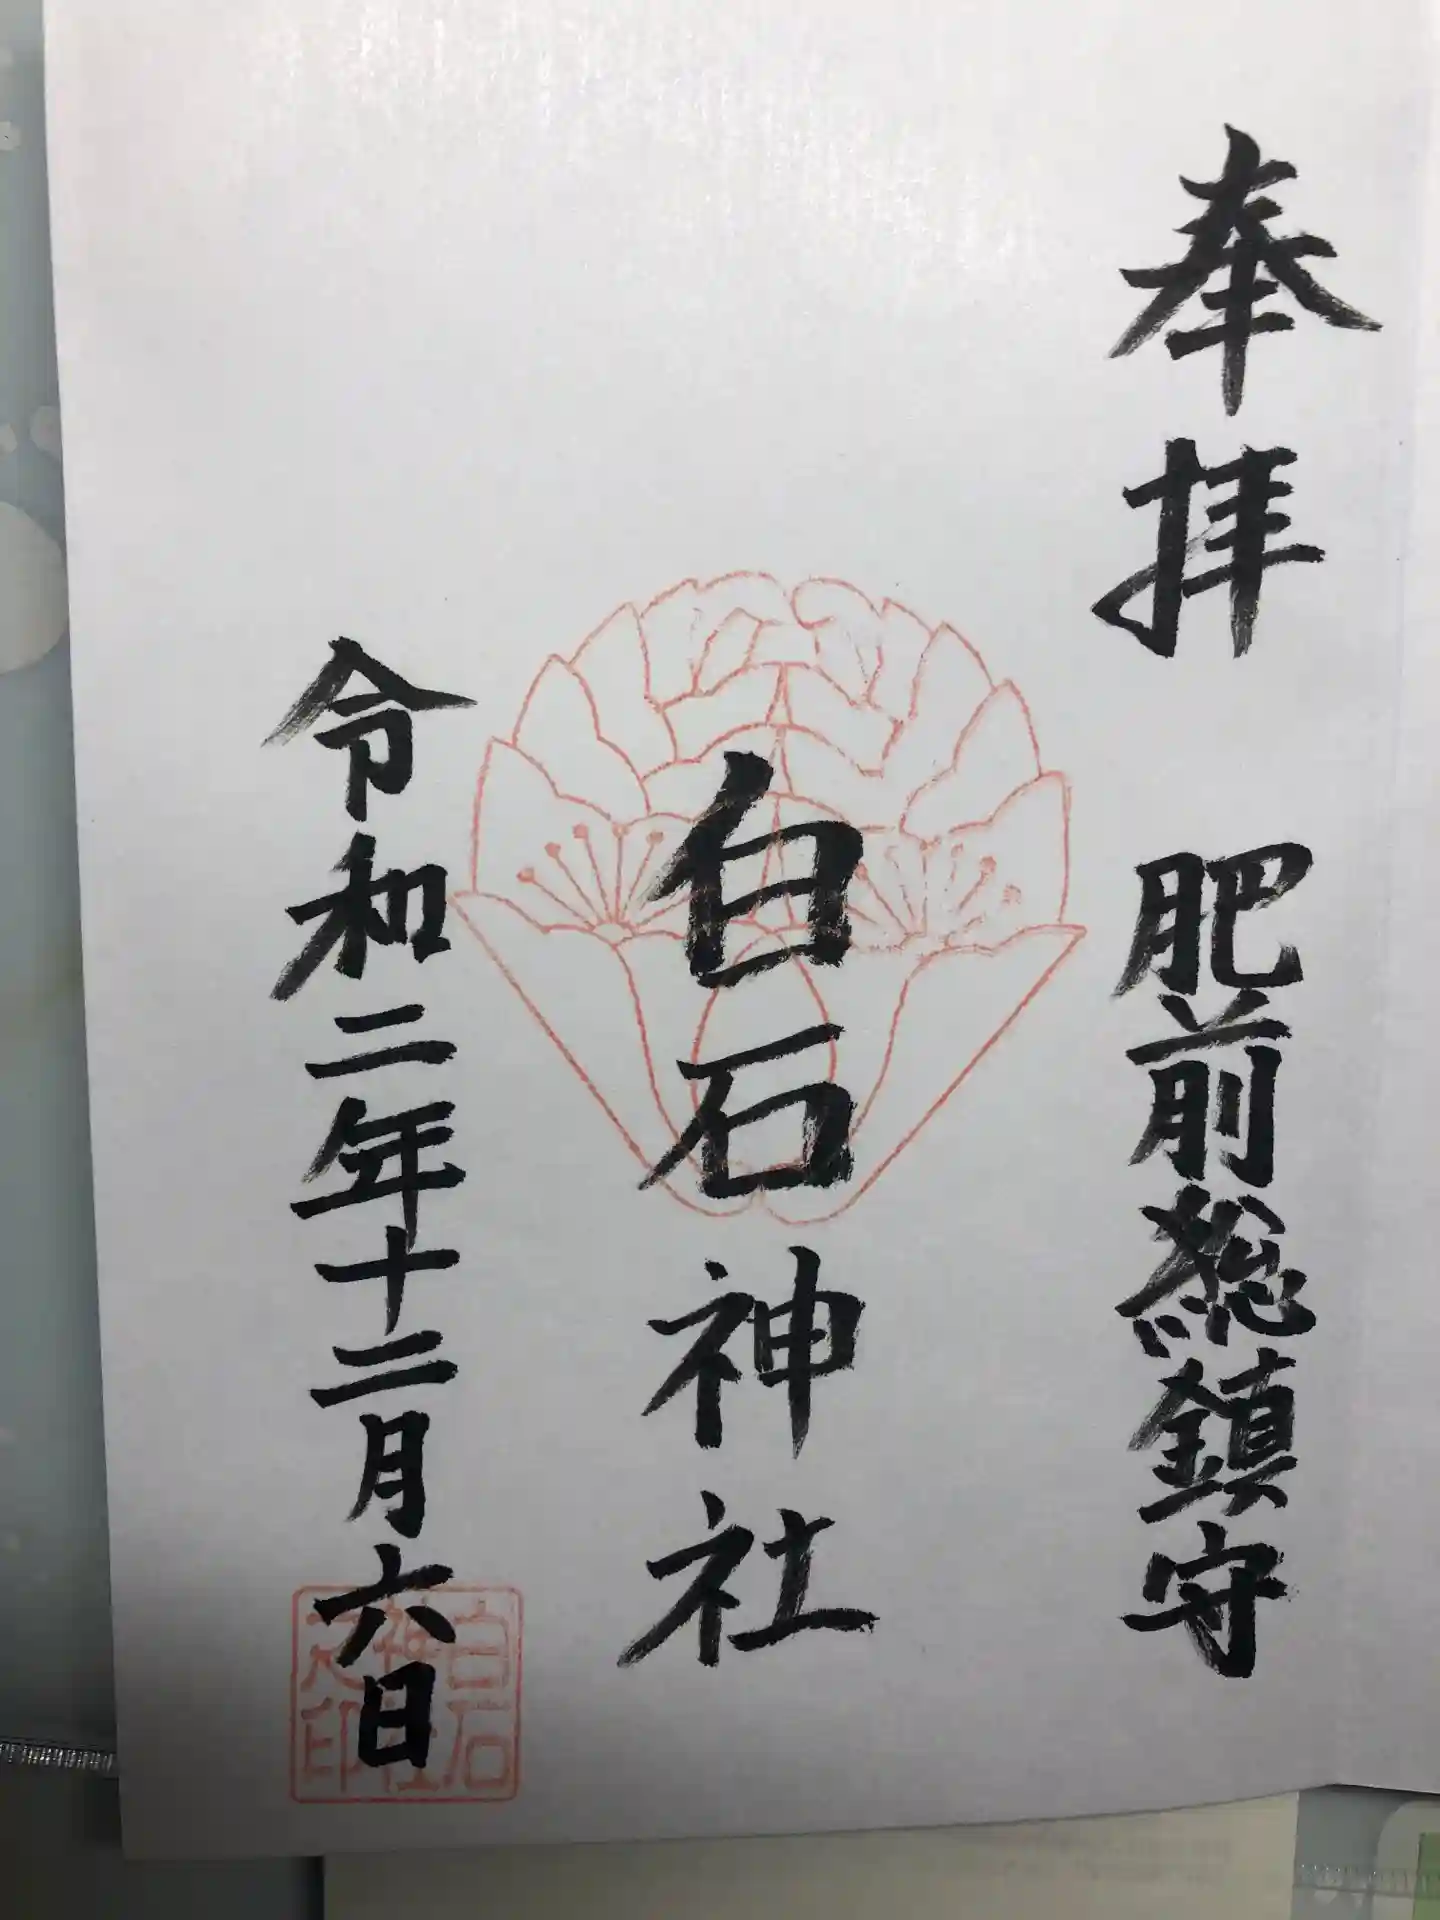 奉拝 肥前総鎮守
白石神社
令和二年十二月六日
白石
神社
之印